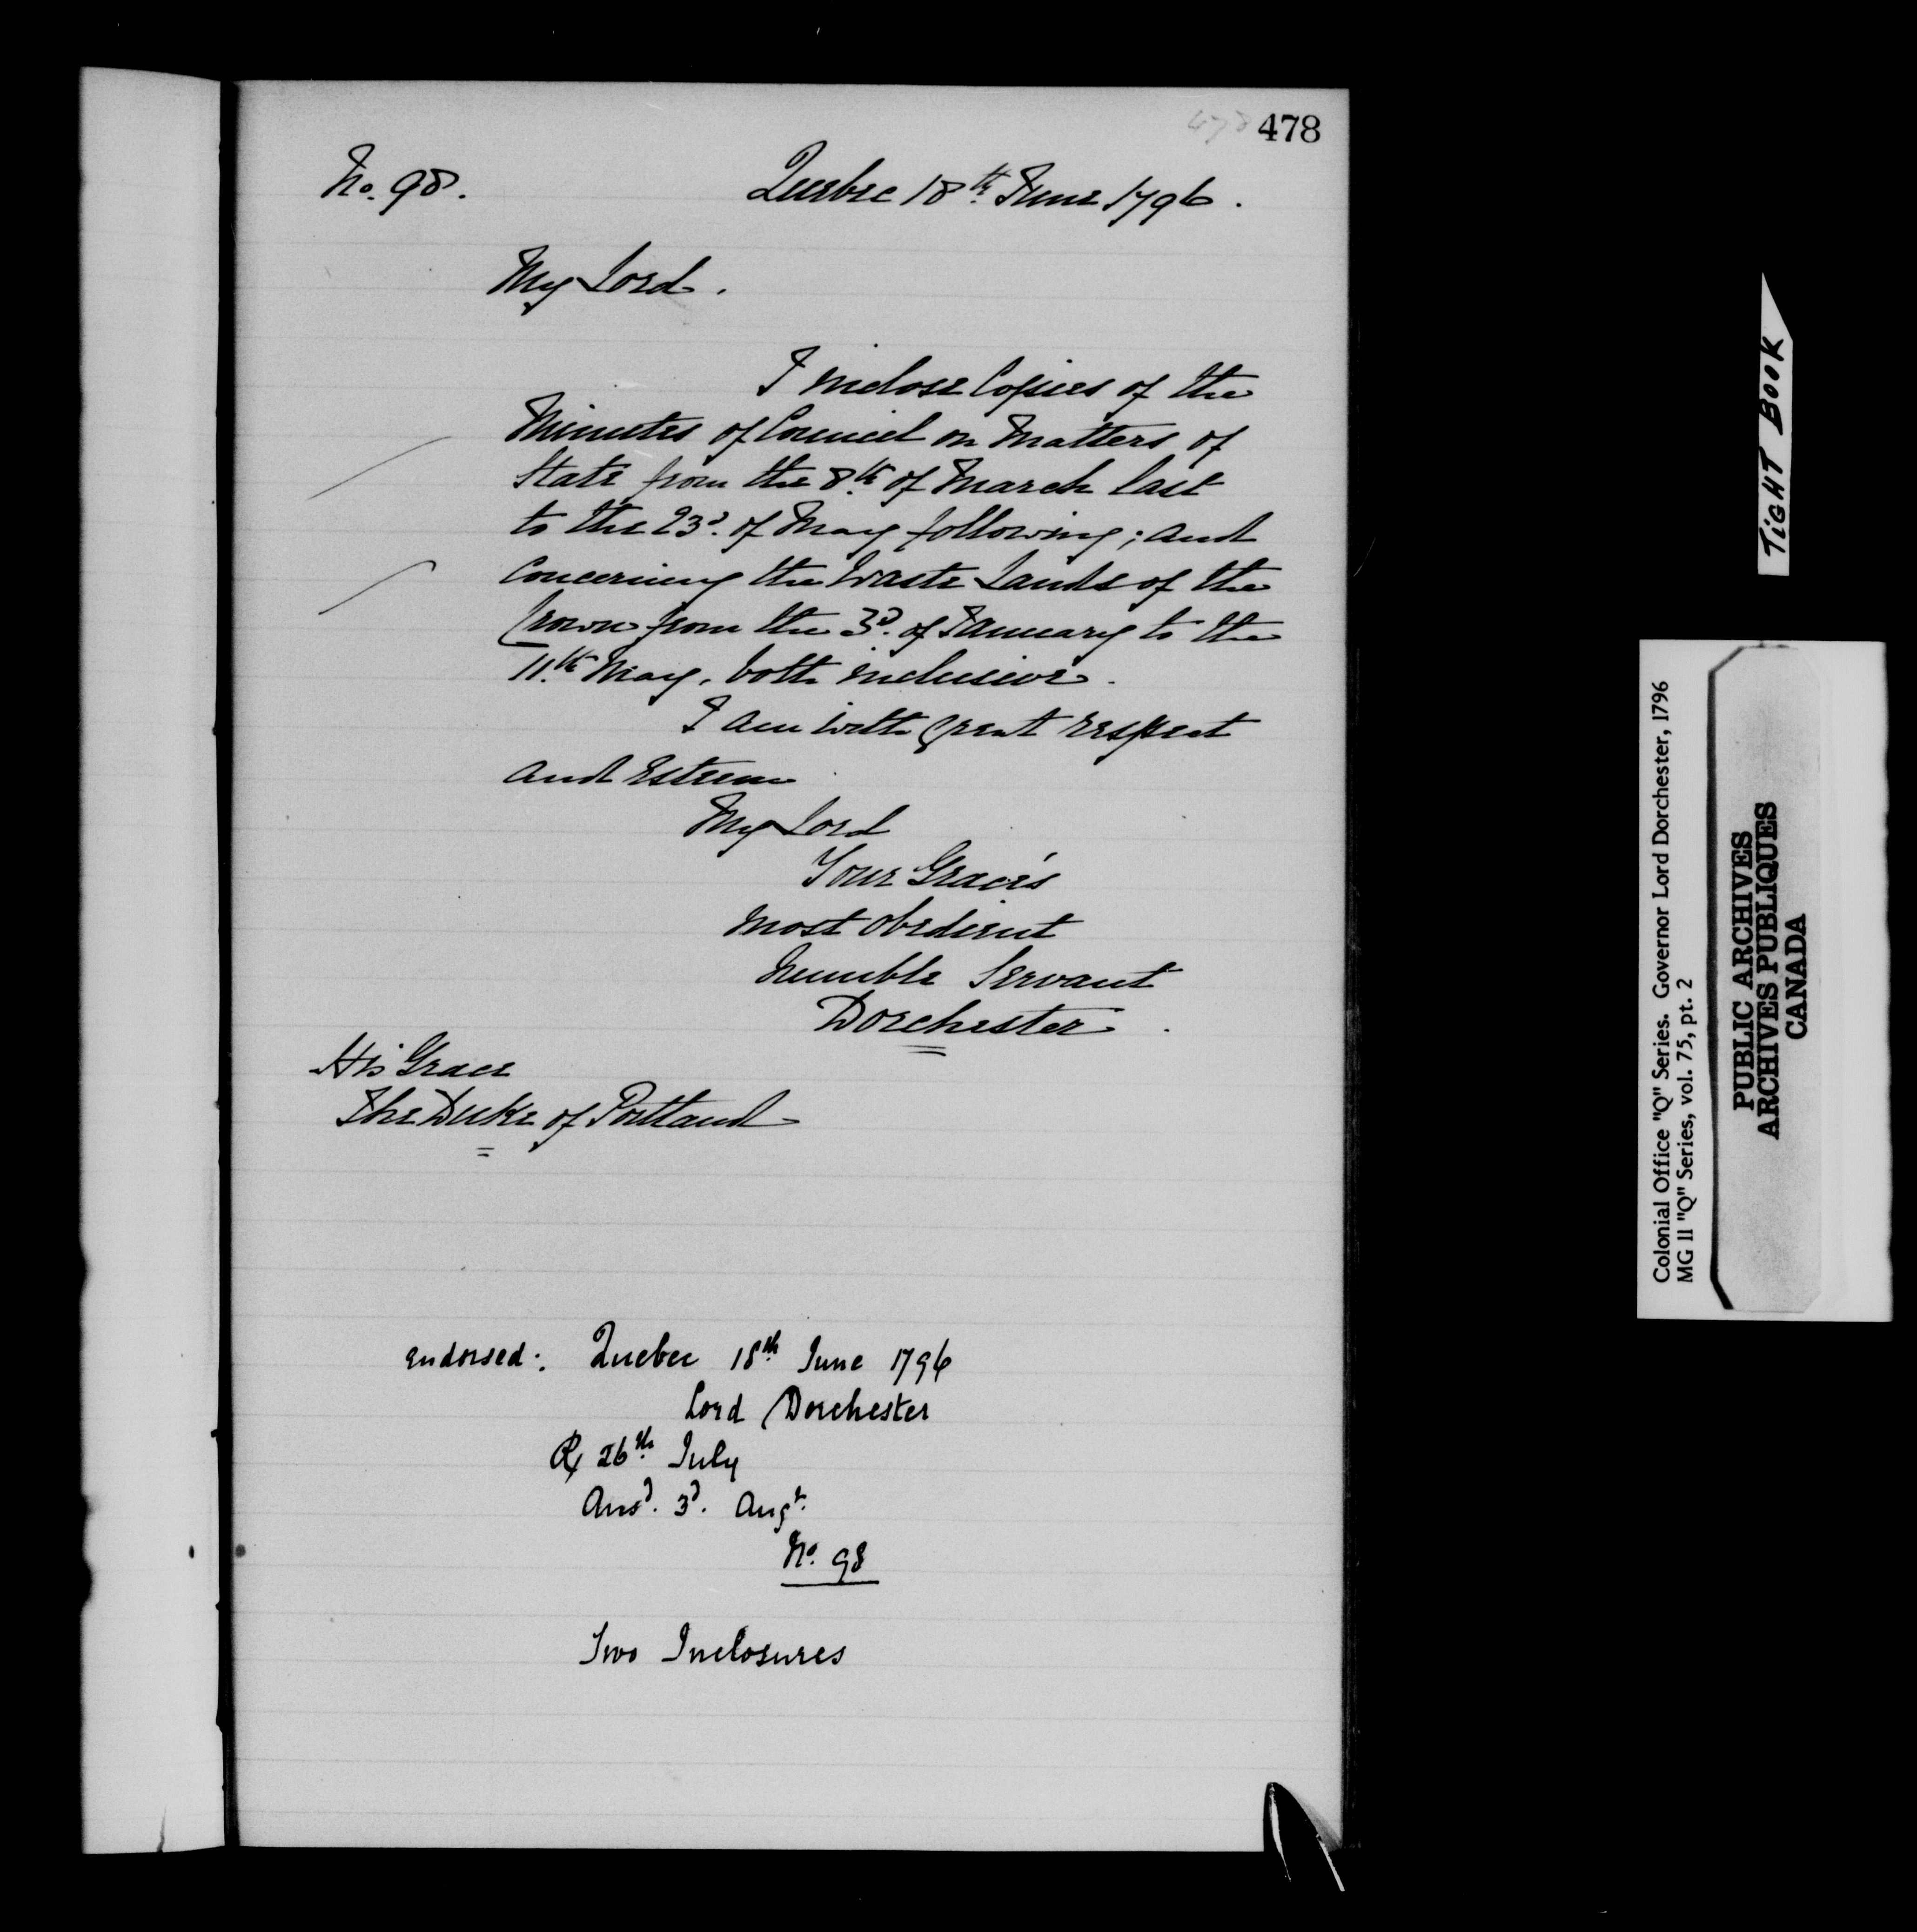 478 478
No. 98. Quebec 18th. June 1796.
My Lord.
I inclose Copies of the
Minutes of Council on Matters of
State from the 8th. of March last
to the 23d. of May following; and
Concerning the Waste Lands of the
Crown from the 3d. of January to the
11th. May, both inclusive.
I am with great respect
and Esteem
My Lord
Your Grace's
most obedient
humble Servant
Dorchester.
His Grace
The Duke of Portland
endorsed: Quebec 18th. June 1796
Lord Dorchester
R 26th. July
Ansd. 3d. Augt.
No. 98
Two Inclosures
TIGHT BOOK
Colonial Office "Q" Series. Governor Lord Dorchester, 1796
MG 11 "Q" Series, vol. 75, pt. 2
PUBLIC ARCHIVES
ARCHIVES PUBLIQUES
CANADA